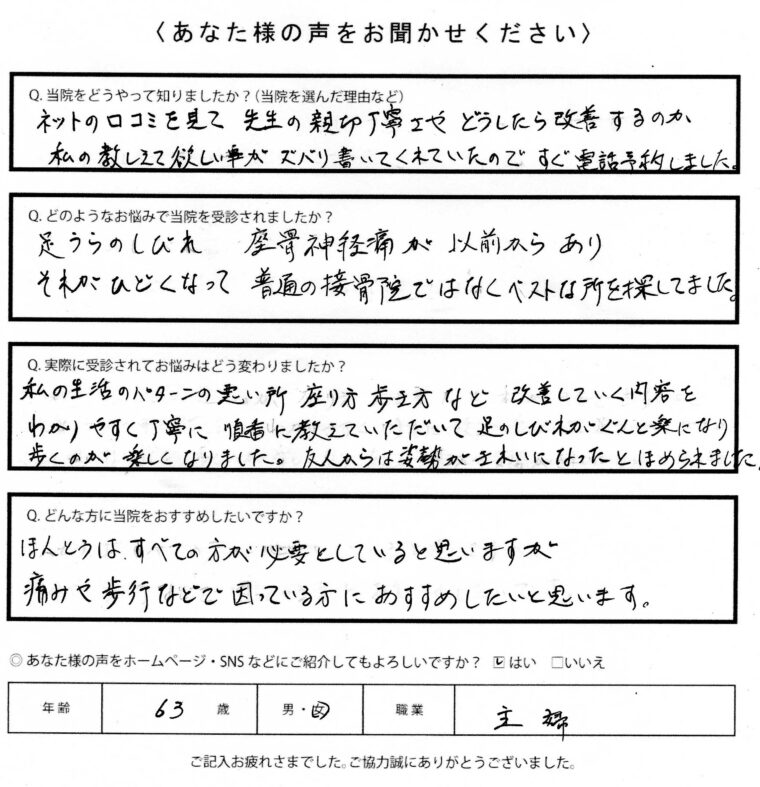 〈あなた様の声をお聞かせください〉
Q. 当院をどうやって知りましたか？(当院を選んだ理由など)
ネットの口コミを見て 先生の親切丁寧さや どうしたら改善するのか
私の教しえて欲しい事が ズバリ書いてくれていたので すぐ電話予約しました。
Q. どのようなお悩みで当院を受診されましたか？
足うらのしびれ 座骨神経痛が 以前から あり
それがひどくなって 普通の接骨院ではなくベストな所を探してました。
Q. 実際に受診されてお悩みはどう変わりましたか？
私の生活のパターンの悪い所 座り方 歩き方 など 改善していく内容を
わかりやすく丁寧に 順番に教えていただいて 足のしびれがぐんと楽になり
歩くのが 楽しくなりました。友人からは姿勢がきれいになったとほめられました。
Q. どんな方に当院をおすすめしたいですか？
ほんとうは、すべての方が必要としていると思いますが
痛みや歩行などで困っている方に おすすめしたいと思います。
◎ あなた様の声をホームページ・SNS などにご紹介してもよろしいですか？ ☑はい □いいえ
年齢 63 歳 男・女 職業 主婦
ご記入お疲れさまでした。ご協力誠にありがとうございました。